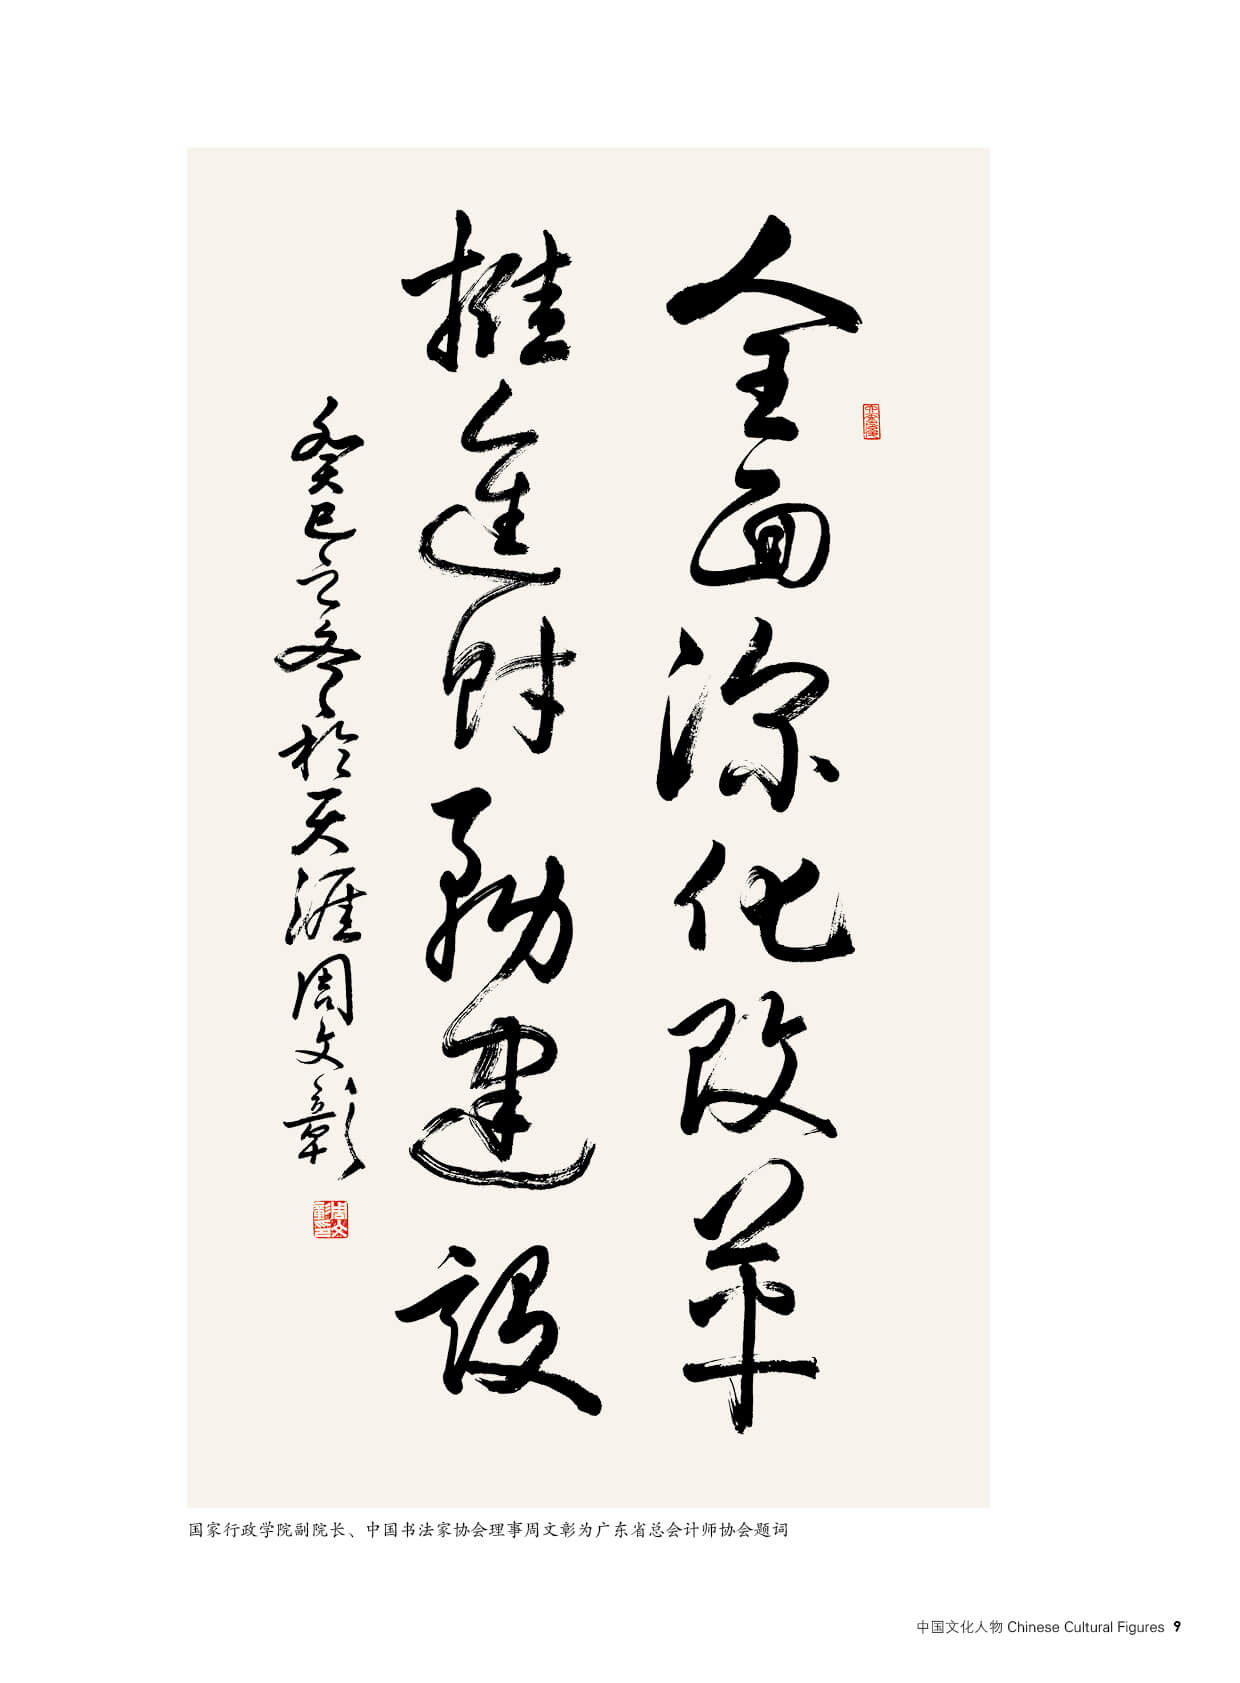 全面深化改革
推進財務建設
癸巳之冬於天涯周文彰
周文彰印
国家行政学院副院长、中国书法家协会理事周文彰为广东省总会计师协会题词
中国文化人物 Chinese Cultural Figures 9